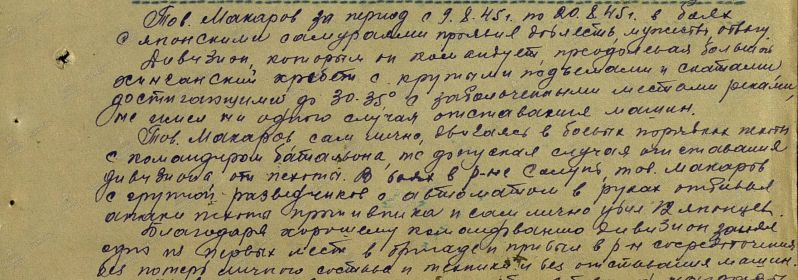 Тов. Макаров за период с 9.8.45г. по 20.8.45г. в боях
с японскими самураями проявил доблесть, мужество, отвагу.
Дивизион, которым он командует, преодолевая большой
хинганский хребет с крутыми подъемами и скатами
достигающими до 30-35° с заболоченными местами реками,
не имел ни одного случая отставания машин.
Тов. Макаров сам лично, двигаясь в боевых порядках пехоты
с командиром батальона, не допуская случая отставания
дивизиона от пехоты. В боях в р-не тов. Макаров
с группой разведчиков с автоматом в руках отбивал
атаки пехоты противника и сам лично убил 12 японцев.
Благодаря хорошему командованию дивизион занял
одно из первых мест в бригаде и прибыл в р-н сосредоточения
без потерь личного состава и техники и без отставания машин.